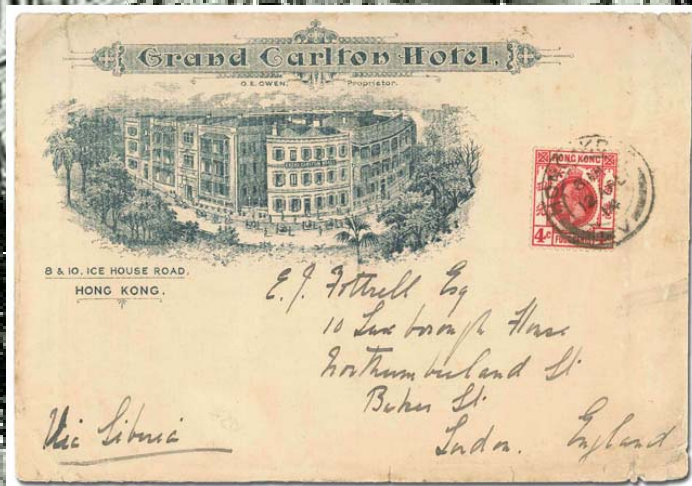 Grand Carlton Hotel,
O.E. OWEN, Proprietor.
GRAND CARLTON HOTEL
8 & 10, ICE HOUSE ROAD,
HONG KONG.
HONG KONG
4c
E. J. Fottrell Esq
10 Luxborough House
Northumberland St
Baker St.
London. England
Via Siberia